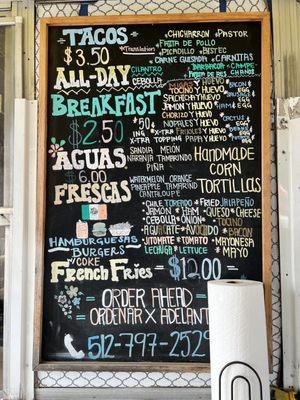 TACOS
$3.50
*Translation
*CHICHARRON *PASTOR
FAJITA DE POLLO
*PICADILLO *BISTEC
CARNE GUISADA *CARNITAS
*BARBACOA *CAMPECHANAS
FAJITA DE RES
ALL-DAY
CILANTRO
CEBOLLA
BREAKFAST
$2.50
TOCINO Y HUEVO
SALCHICHA Y HUEVO
JAMON Y HUEVO
CHORIZO Y HUEVO
NOPALES Y HUEVO
FRIJOLES Y HUEVO
PAPA Y HUEVO
50¢
X-TRA
X-TRA TOPPING
AGUAS
$6.00
FRESCAS
SANDIA MELÓN
NARANJA TAMARINDO
PIÑA
WATERMELON ORANGE
PINEAPPLE TAMARIND
CANTALOUPE
HANDMADE
CORN
TORTILLAS
HAMBURGUESAS
BURGERS
Y COKE
FRENCH FRIES
*CHILE TOREADO *FRIED JALAPEÑO
*JAMON *HAM *QUESO *CHEESE
*CEBOLLA *ONION *TOCINO *BACON
*AGUACATE *AVOCADO
*JITOMATE *TOMATO *MAYONESA
*LECHUGA *LETTUCE *MAYO
$12.00
ORDER AHEAD
ORDENAR X ADELANTADO
512-797-2529